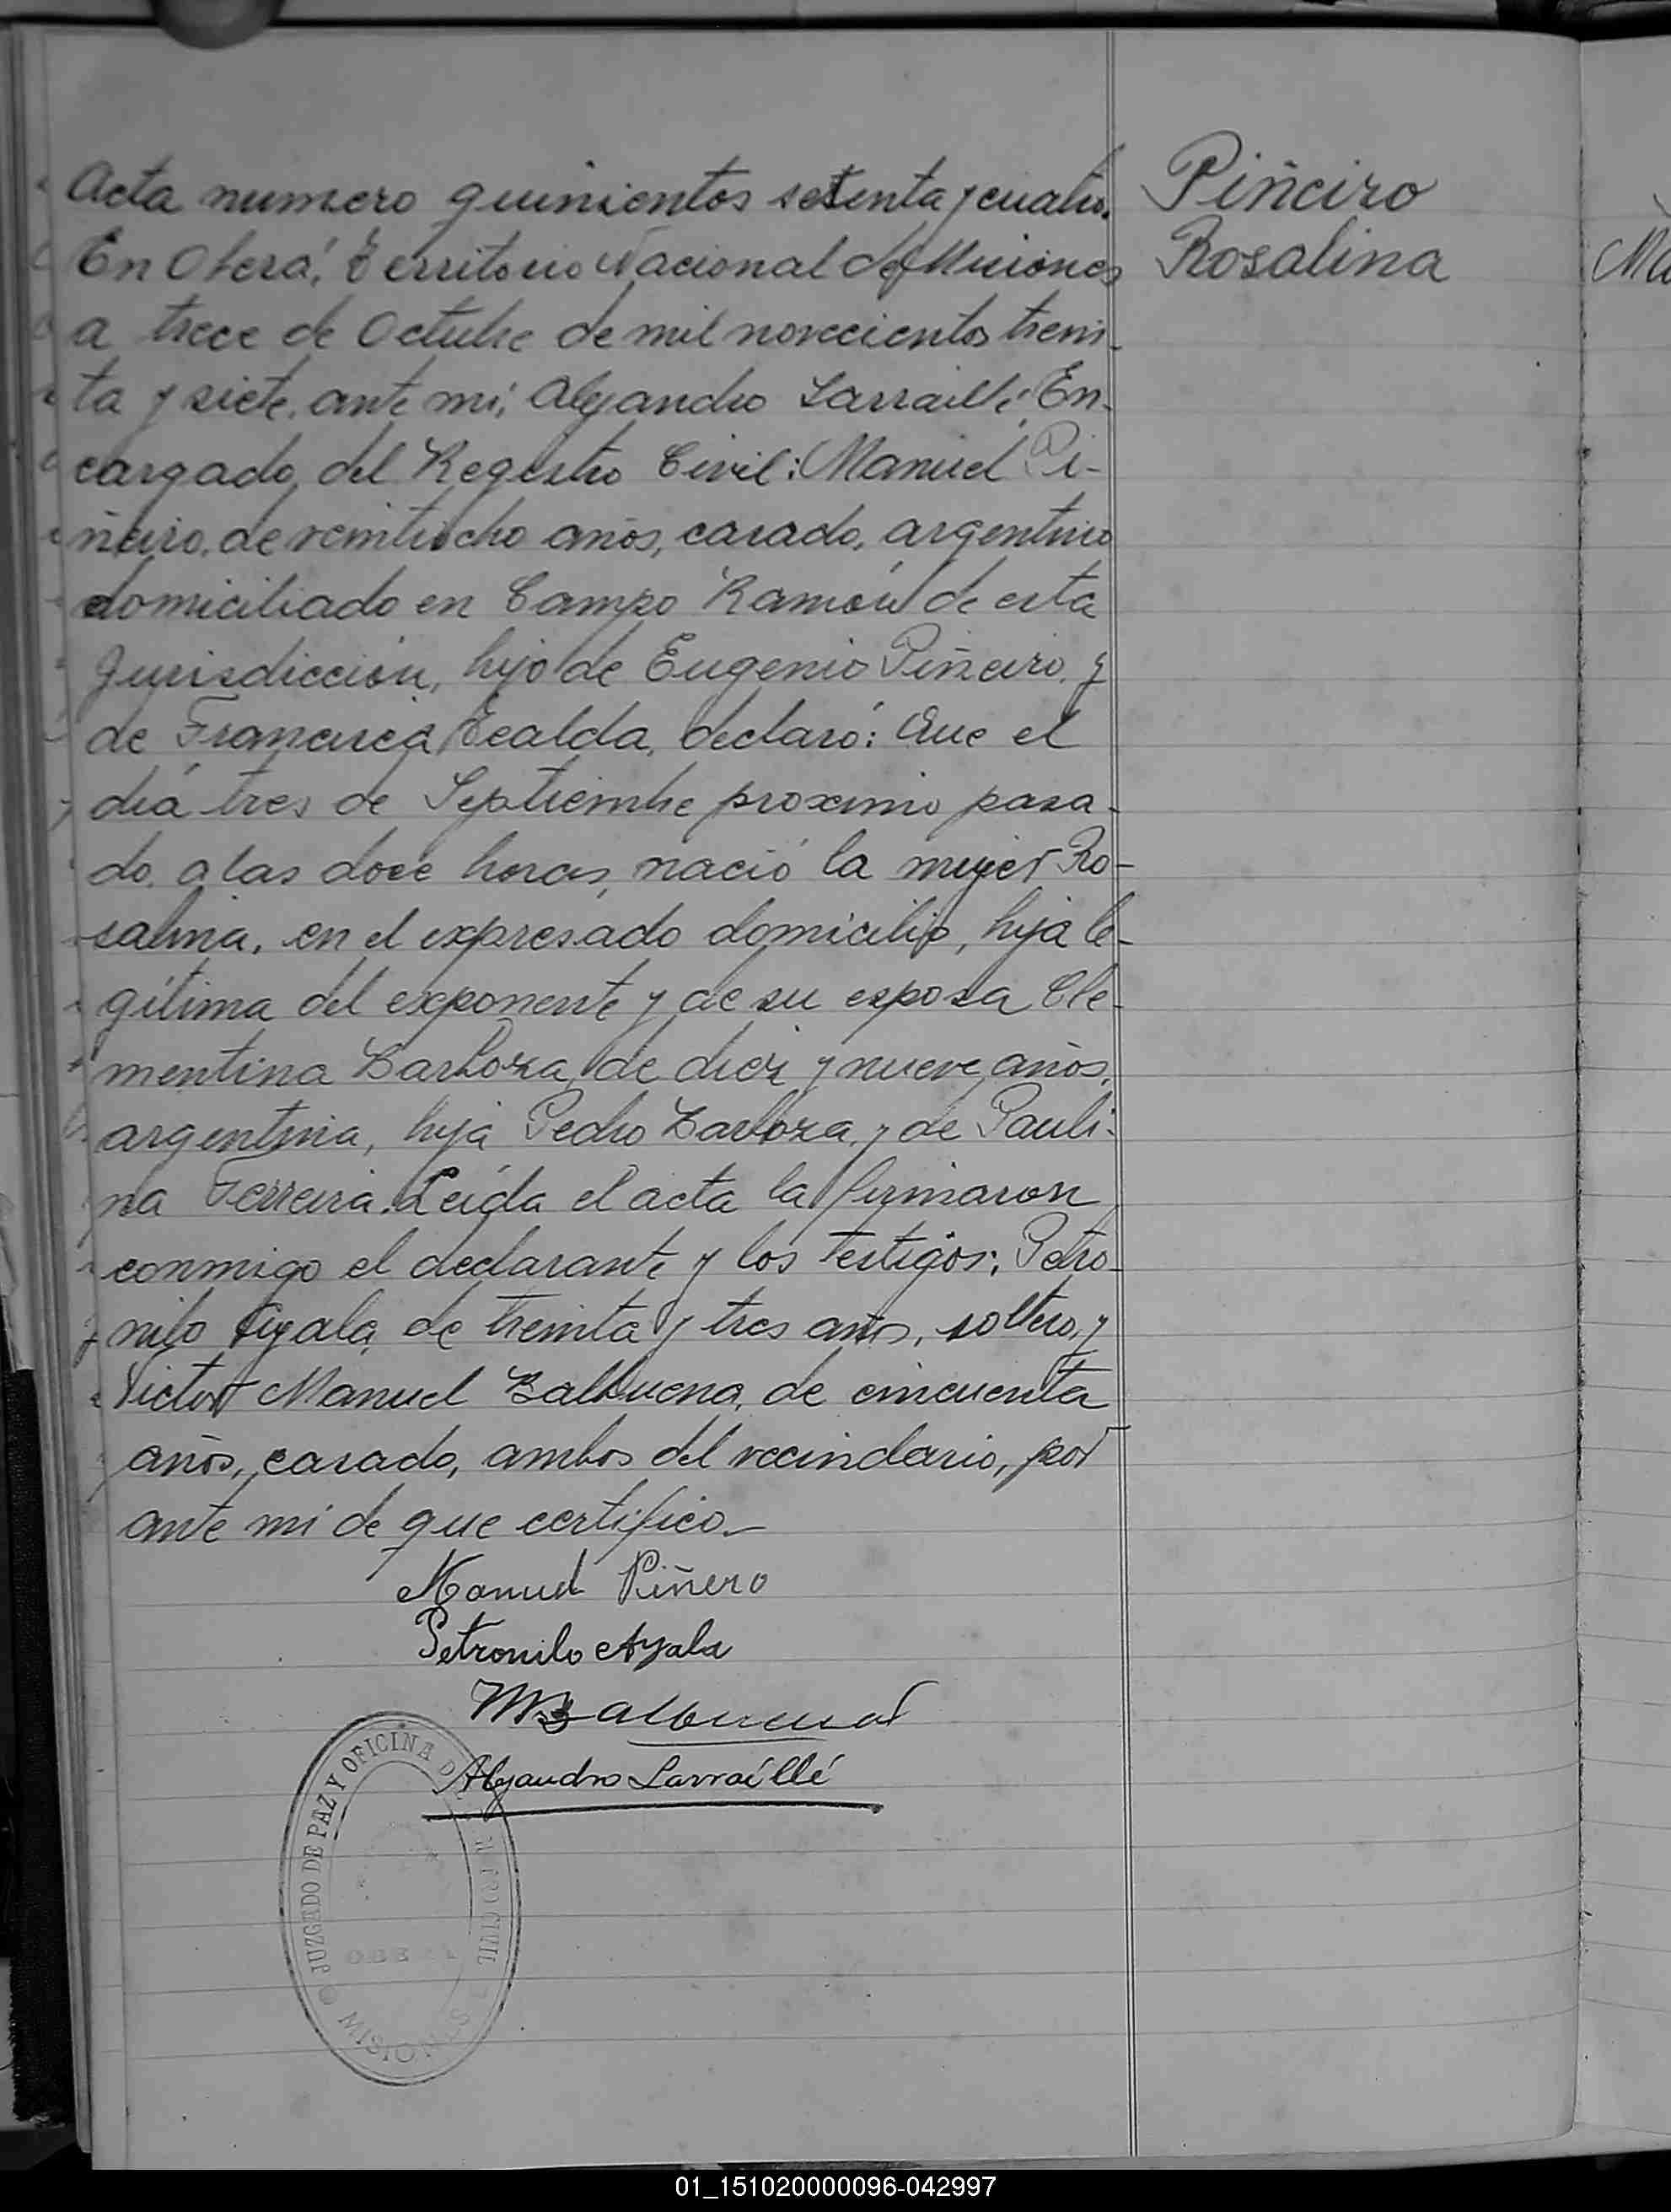 Acta numero quinientos setenta y cuatro.
Piñeiro
Rosalina
En Oberá, Territorio Nacional de Misiones
a trece de Octubre de mil novecientos trein-
ta y siete, ante mi, Alejandro Larraillé, En-
cargado del Registro Civil: Manuel Pi-
ñeiro, de veintiocho años, casado, argentino
domiciliado en Campo Ramón de esta
Jurisdicción, hijo de Eugenio Piñeiro, y
de Francisca, declaró: Que el
día tres de Septiembre proximo pasa-
do, a las doce horas, nació la mujer Ro-
salina, en el expresado domicilio, hija le-
gítima del exponente y de su esposa Cle-
mentina Barboza, de diez y nueve años,
argentina, hija Pedro Barboza, y de Pauli-
na Ferreira. Leída el acta la firmaron
conmigo el declarante y los testigos: Petro-
nilo Ayala, de treinta y tres años, soltero, y
Victor Manuel Balbuena, de cincuenta
años, casado, ambos del vecindario, por
ante mi de que certifico.-
Manuel Piñero
Petronilo Ayala
VMBalbuena
Alejandro Larraíllé
JUZGADO DE PAZ Y OFICINA D
CIVIL
OBERA
MISIONES
01_151020000096-042997